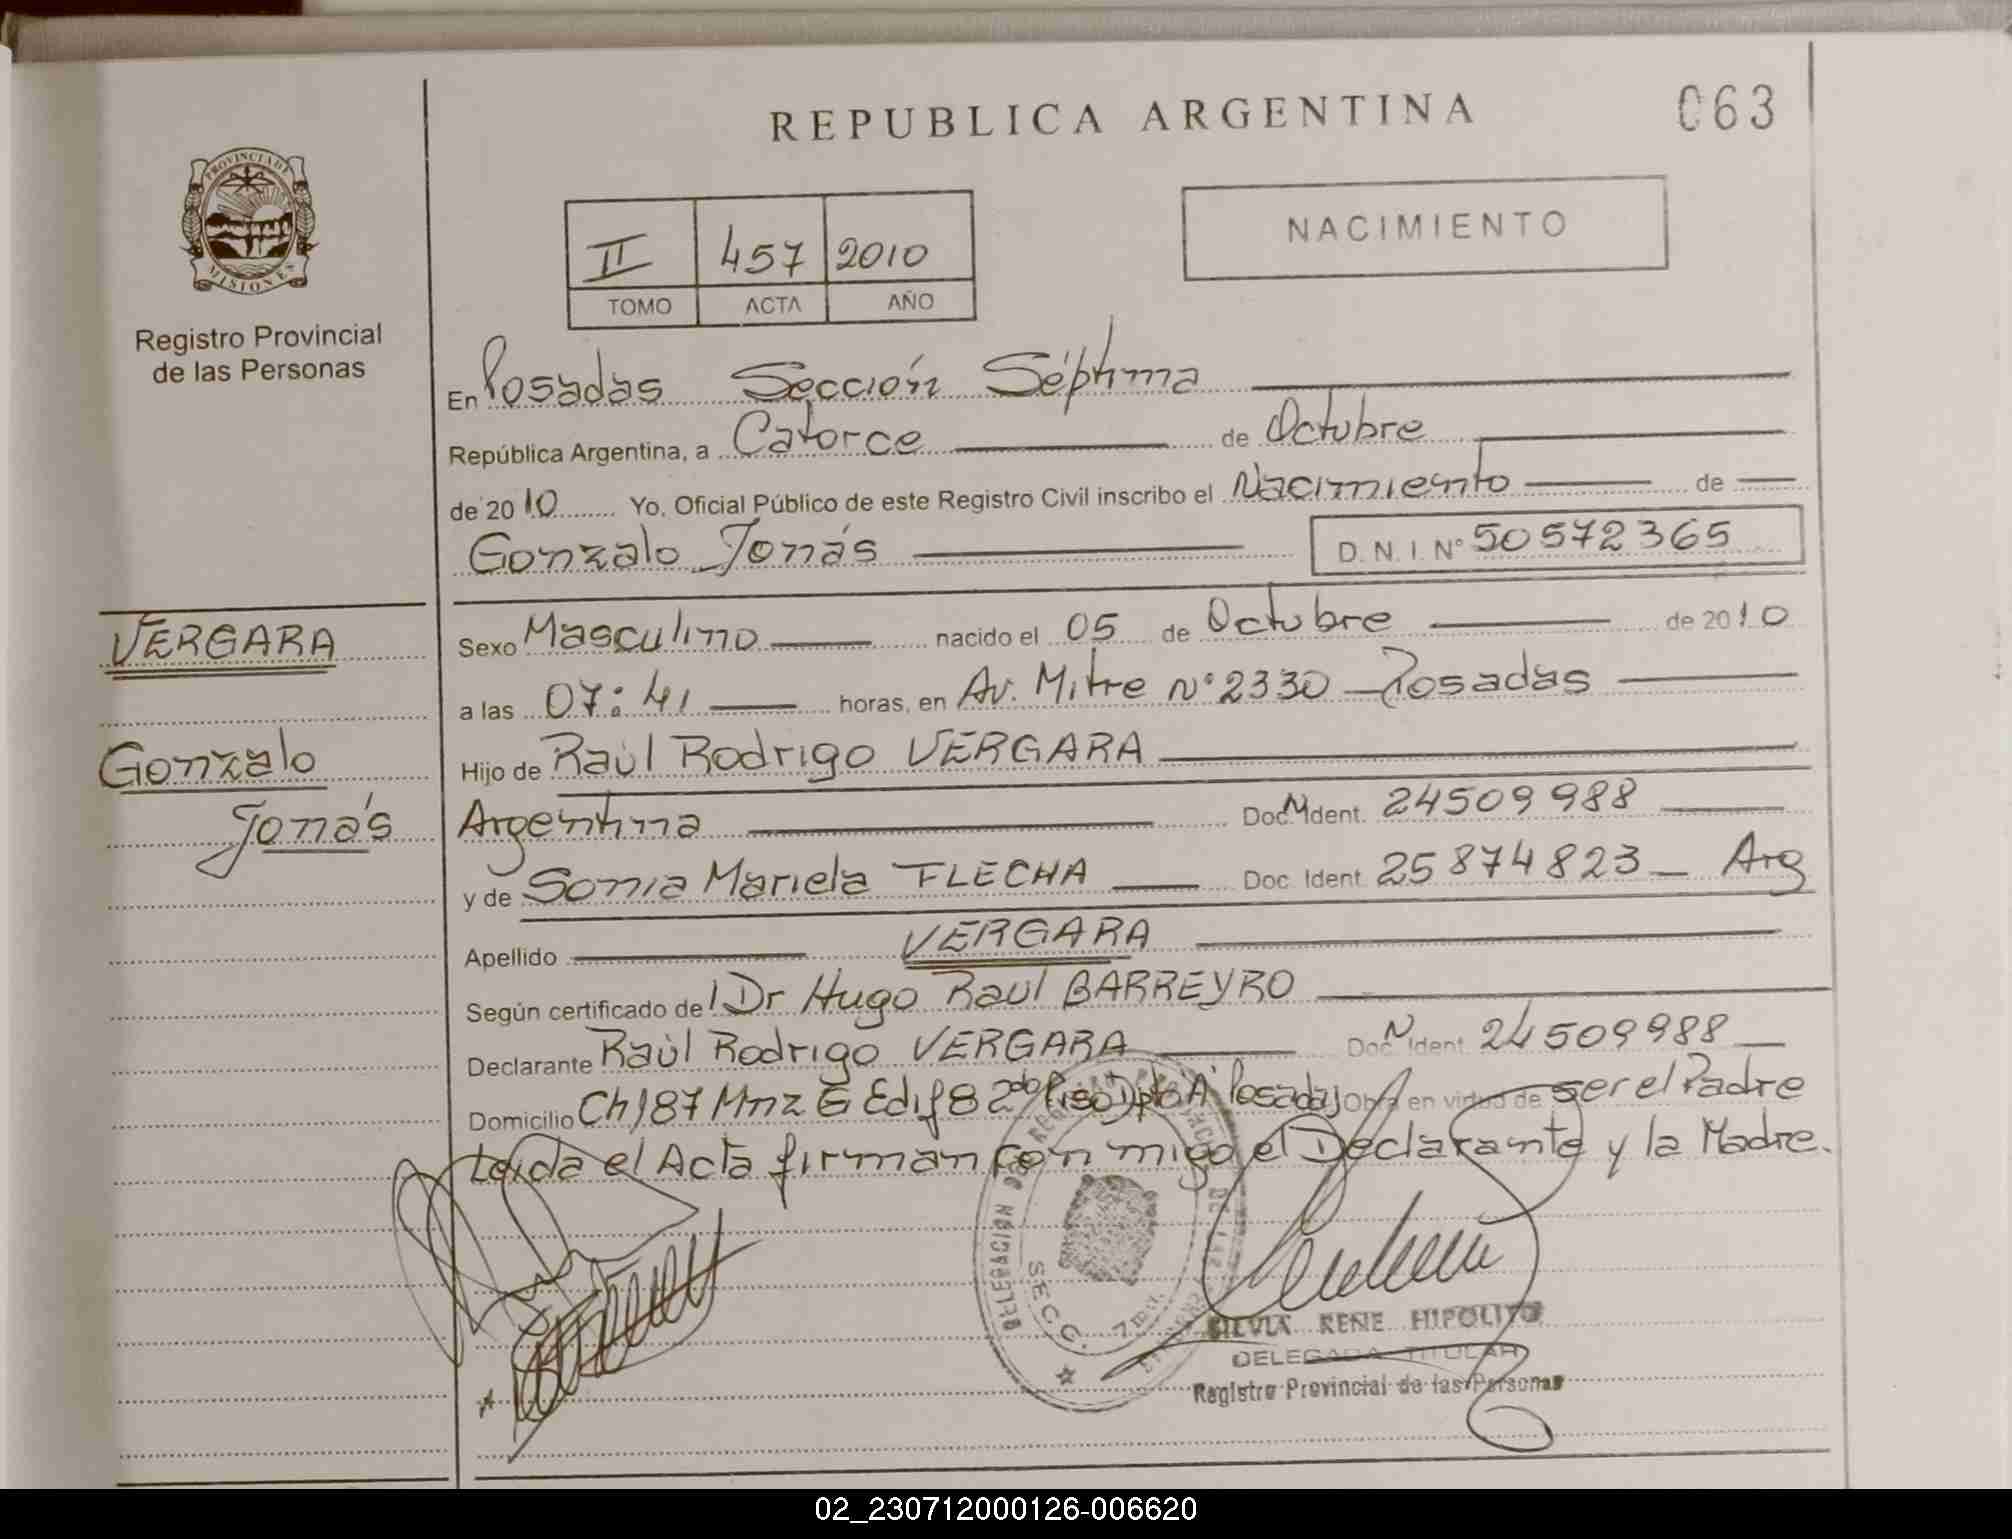 REPUBLICA ARGENTINA
063
PROVINCIA DE
MISIONES
Registro Provincial
de las Personas
II 457 2010
TOMO ACTA AÑO
NACIMIENTO
En Posadas Sección Séptima
República Argentina, a Catorce de Octubre
de 2010 Yo, Oficial Público de este Registro Civil inscribo el Nacimiento de
Gonzalo Jonás D. N. I. N° 50572365
VERGARA
Gonzalo
Jonás
Sexo Masculino nacido el 05 de Octubre de 2010
a las 07:41 horas, en Av. Mitre N° 2330 Posadas
Hijo de Raúl Rodrigo VERGARA
Argentina Doc. N Ident. 24509988
y de Sonia Mariela FLECHA Doc. Ident. 25874823 Arg
Apellido VERGARA
Según certificado del Dr Hugo Raul BARREYRO
Declarante Raúl Rodrigo VERGARA Doc. N Ident. 24509988
Domicilio Ch187 Mnz E Edif 8 2do Piso Dpto "A" Posadas Obra en virtud de ser el Padre
Leida el Acta firman conmigo el Declarante y la Madre.
DELEGACION
SECC. 7
SILVIA RENE HIPOLITO
DELEGADA TITULAR
Registro Provincial de las Personas
02_230712000126-006620